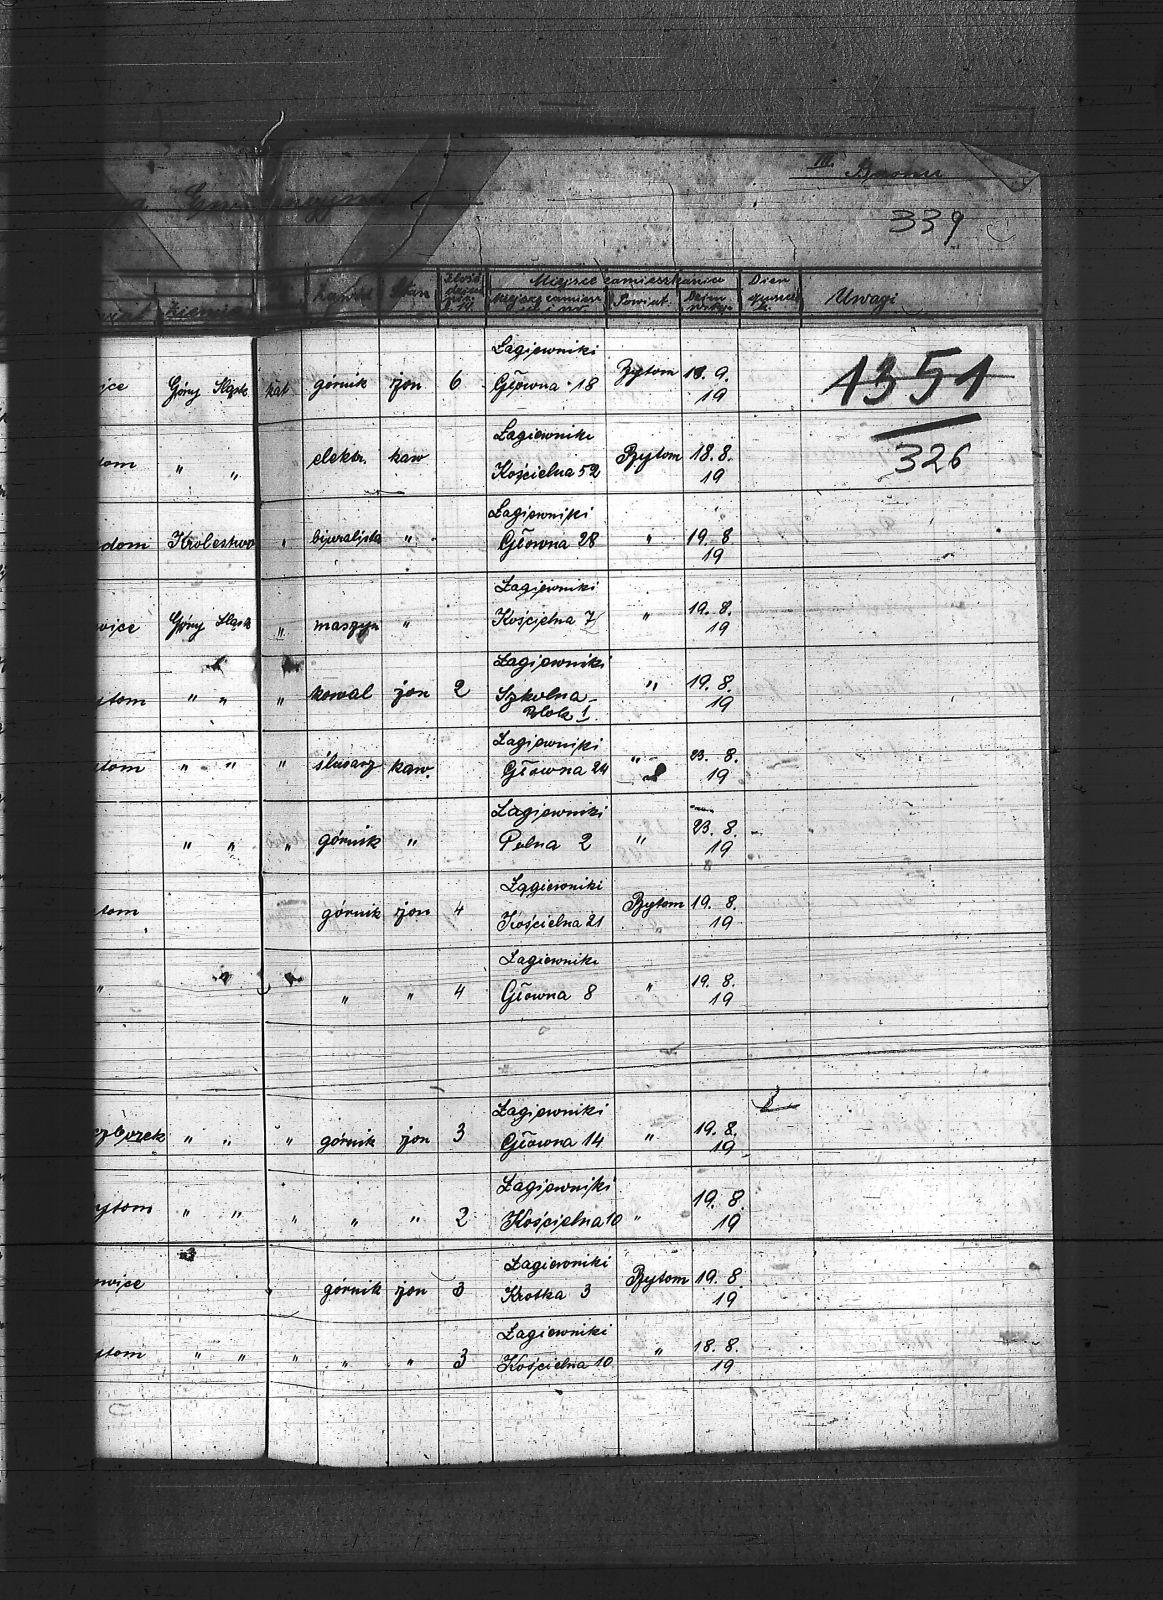 III.
339
Zawód Stan Ilość dzieci Miejsce zamieszkania Dzien
Ziemia Miejsce zamiesz. i nr. Powiat Uwagi
Łagiewniki
ice Góny Śląsk kat górnik żon 6 Główna 18 Bytom 18. 9. 19
1351
Łagiewniki
tom " " elektr. kaw Kościelna 52 Bytom 18. 8. 19
326
Łagiewniki
dom Królestwo " " Główna 28 " 19. 8. 19
Łagiewniki
wice Góny Śląsk " maszyn " Kościelna 7 " 19. 8. 19
Łagiewniki
ytom " " " kowal żon 2 Szkolna " 19. 8. 19
Blok 1
Łagiewniki
tom " " " ślusarz kaw. Główna 24 " 23. 8. 19
Łagiewniki
" " " górnik " Polna 2 " 23. 8. 19
Łagiewniki
tom górnik żon 4 Kościelna 21 Bytom 19. 8. 19
Łagiewniki
" " " 4 Główna 8 " 19. 8. 19
Łagiewniki
czborek " " " górnik żon 3 Główna 14 " 19. 8. 19
Łagiewniki
ytom " " " " " 2 Kościelna 10 " 19. 8. 19
Łagiewniki
wice górnik żon 3 Krotka 3 Bytom 19. 8. 19
Łagiewniki
ytom " " " " " 3 Kościelna 10 " 18. 8. 19